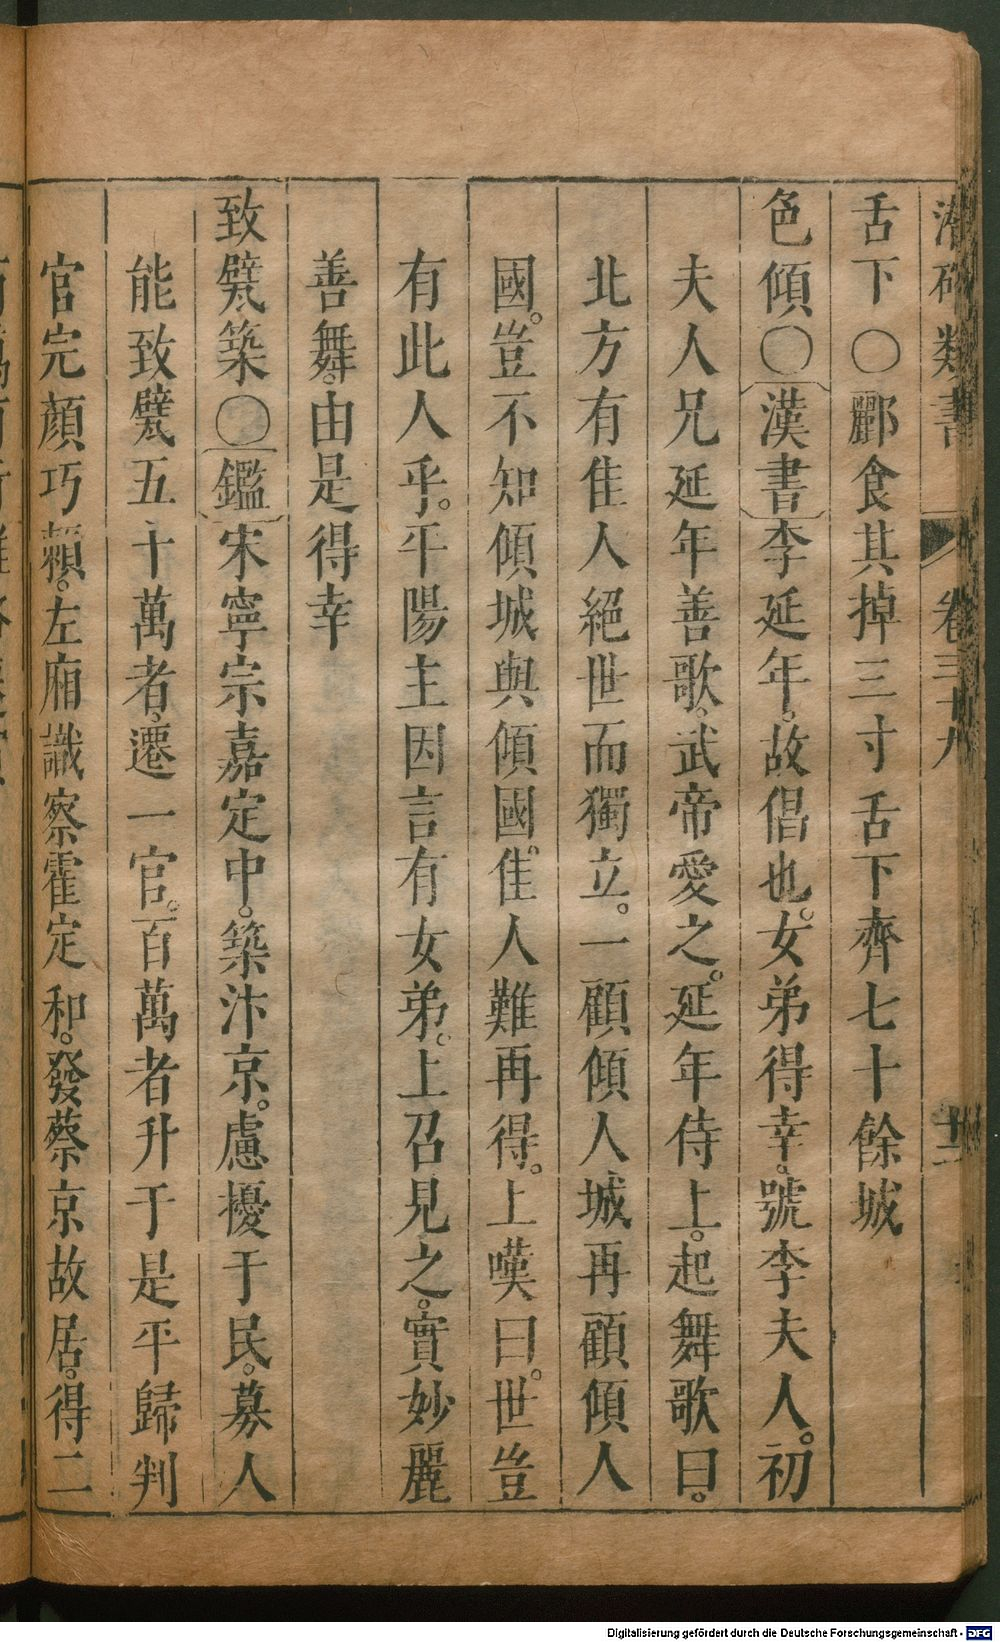 潛確類書 卷三十九 廿二
舌下○酈食其掉三寸舌下齊七十餘城
色傾○漢書李延年。故倡也。女弟得幸。號李夫人。初
夫人兄延年善歌。武帝愛之。延年侍上。起舞歌曰。
北方有佳人絕世而獨立。一顧傾人城再顧傾人
國。豈不知傾城與傾國。佳人難再得。上嘆曰。世豈
有此人乎。平陽主因言有女弟。上召見之。實妙麗
善舞。由是得幸
致甓築○鑑宋寧宗嘉定中。築汴京。慮擾于民。募人
能致甓五十萬者。遷一官。百萬者升于是平歸判
官完顏巧賴。左廂譏察霍定和。發蔡京故居。得二
Digitalisierung gefördert durch die Deutsche Forschungsgemeinschaft - DFG